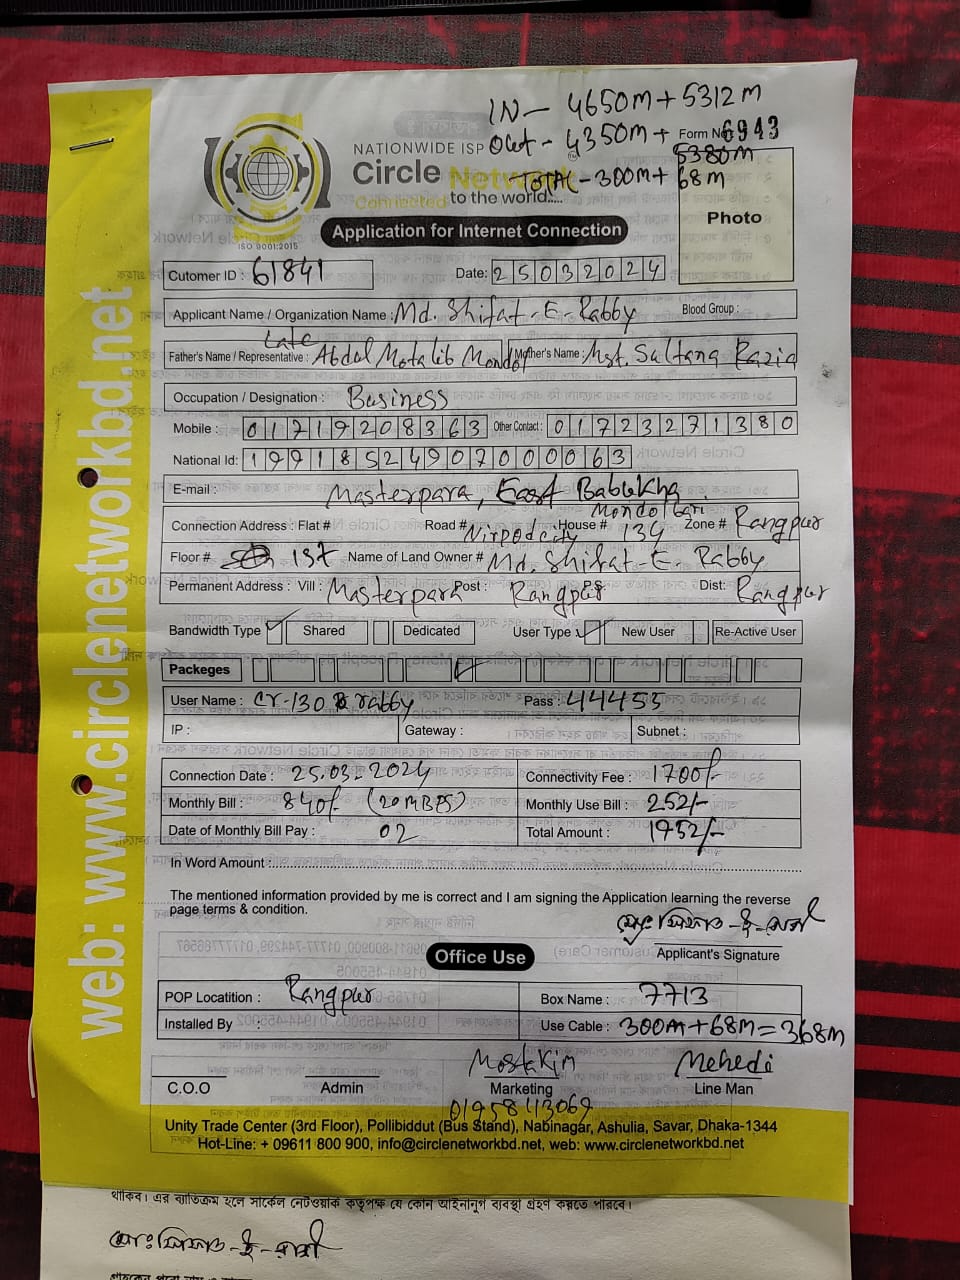 IN - 4650m + 5312m
Out - 4350m + 5380m
Form No 6943
TOTAL - 300m + 68m
NATIONWIDE ISP
Circle Network
Connected to the world.....
ISO 9001:2015
Photo
Application for Internet Connection
Cutomer ID : 61841 Date: 25032024
Applicant Name / Organization Name : Md. Shifat-E-Rabby Blood Group :
Father's Name / Representative : Late Abdul Motalib Mondol Mother's Name : Mst. Sultana Razia
Occupation / Designation : Business
Mobile : 01719208363 Other Contact : 01723271380
National Id: 19918524907000063
E-mail : Masterpara, East Babukha
Mondol Bari
Connection Address : Flat # Road # Nirpodcity House # 134 Zone # Rangpur
Floor # 1st Name of Land Owner # Md. Shifat-E-Rabby
Permanent Address : Vill : Masterpara Post : Rangpur P.S Dist: Rangpur
Bandwidth Type Shared Dedicated User Type New User Re-Active User
Packeges
User Name : cr-130 rabby Pass : 44455
IP : Gateway : Subnet :
Connection Date : 25.03.2024 Connectivity Fee : 1700/-
Monthly Bill : 840/- (20MBPS) Monthly Use Bill : 252/-
Date of Monthly Bill Pay : 02 Total Amount : 1952/-
In Word Amount :
The mentioned information provided by me is correct and I am signing the Application learning the reverse
page terms & condition.
মোঃ সিফাত-ই-রাব্বী
Applicant's Signature
Office Use
POP Locatition : Rangpur Box Name : 7713
Installed By : Use Cable : 300m+68m=368m
Mostakim Mehedi
C.O.O Admin Marketing Line Man
01958113069
Unity Trade Center (3rd Floor), Pollibiddut (Bus Stand), Nabinagar, Ashulia, Savar, Dhaka-1344
Hot-Line: + 09611 800 900, info@circlenetworkbd.net, web: www.circlenetworkbd.net
web: www.circlenetworkbd.net
থাকিব। এর ব্যতিক্রম হলে সার্কেল নেটওয়ার্ক কতৃপক্ষ যে কোন আইনানুগ ব্যবস্থা গ্রহণ করতে পারবে।
মোঃ সিফাত-ই-রাব্বী